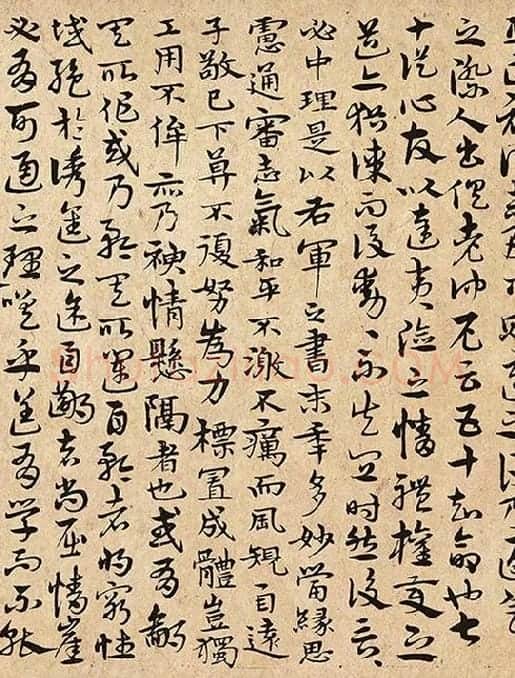 之際人書俱老仲尼云五十知命也七
十從心故以達夷險之情體權變之
道亦猶謀而後動動不失宜時然後言言
必中理是以右軍之書末年多妙當緣思
慮通審志氣和平不激不厲而風規自遠
子敬已下莫不鼓努為力標置成體豈獨
工用不侔亦乃神情懸隔者也或有鄙
其所作或乃矜其所運自矜者將窮性
域絕於誘進之途自鄙者尚屈情涯
必有可通之理嗟乎蓋有學而不能